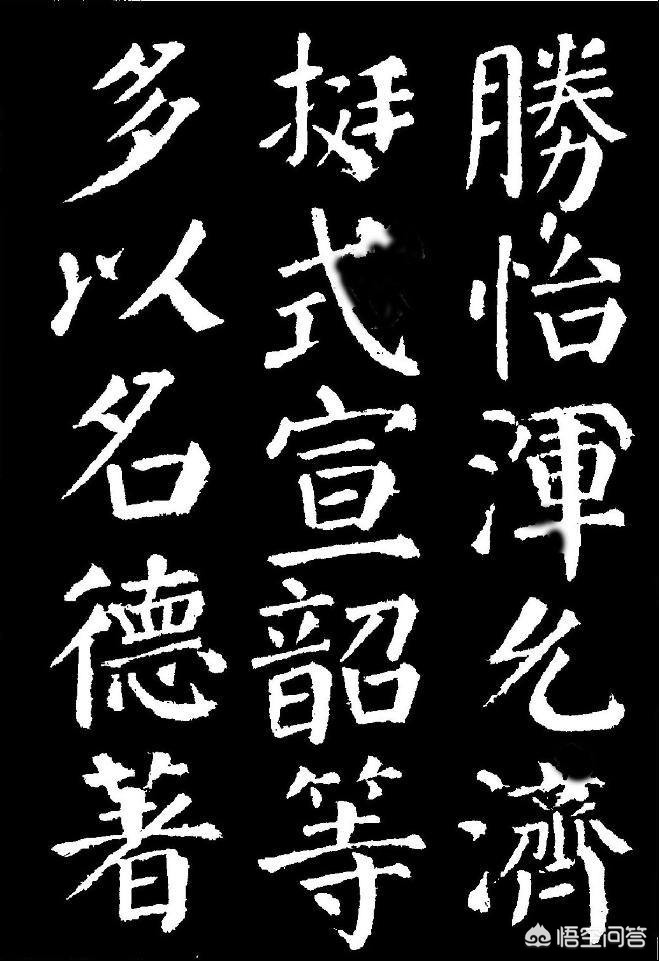 勝怡渾允濟
挺式宣韶等
多以名德著
悟空问答